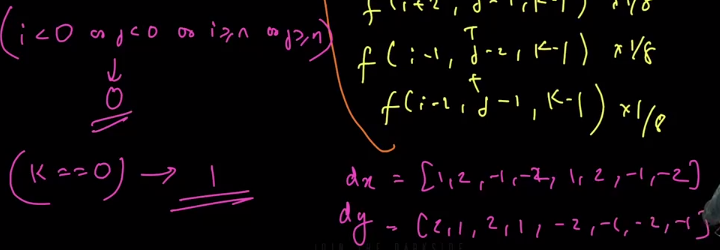 (i<0 or j<0 or i≥n or j≥n)
↓
0
(K==0) → 1
f(i+2, j-1, K-1) ×1/8
f(i-1, j-2, K-1) ×1/8
f(i-2, j-1, K-1) ×1/8
dx = [1,2,-1,-2,1,2,-1,-2]
dy = [2,1,2,1,-2,-1,-2,-1]